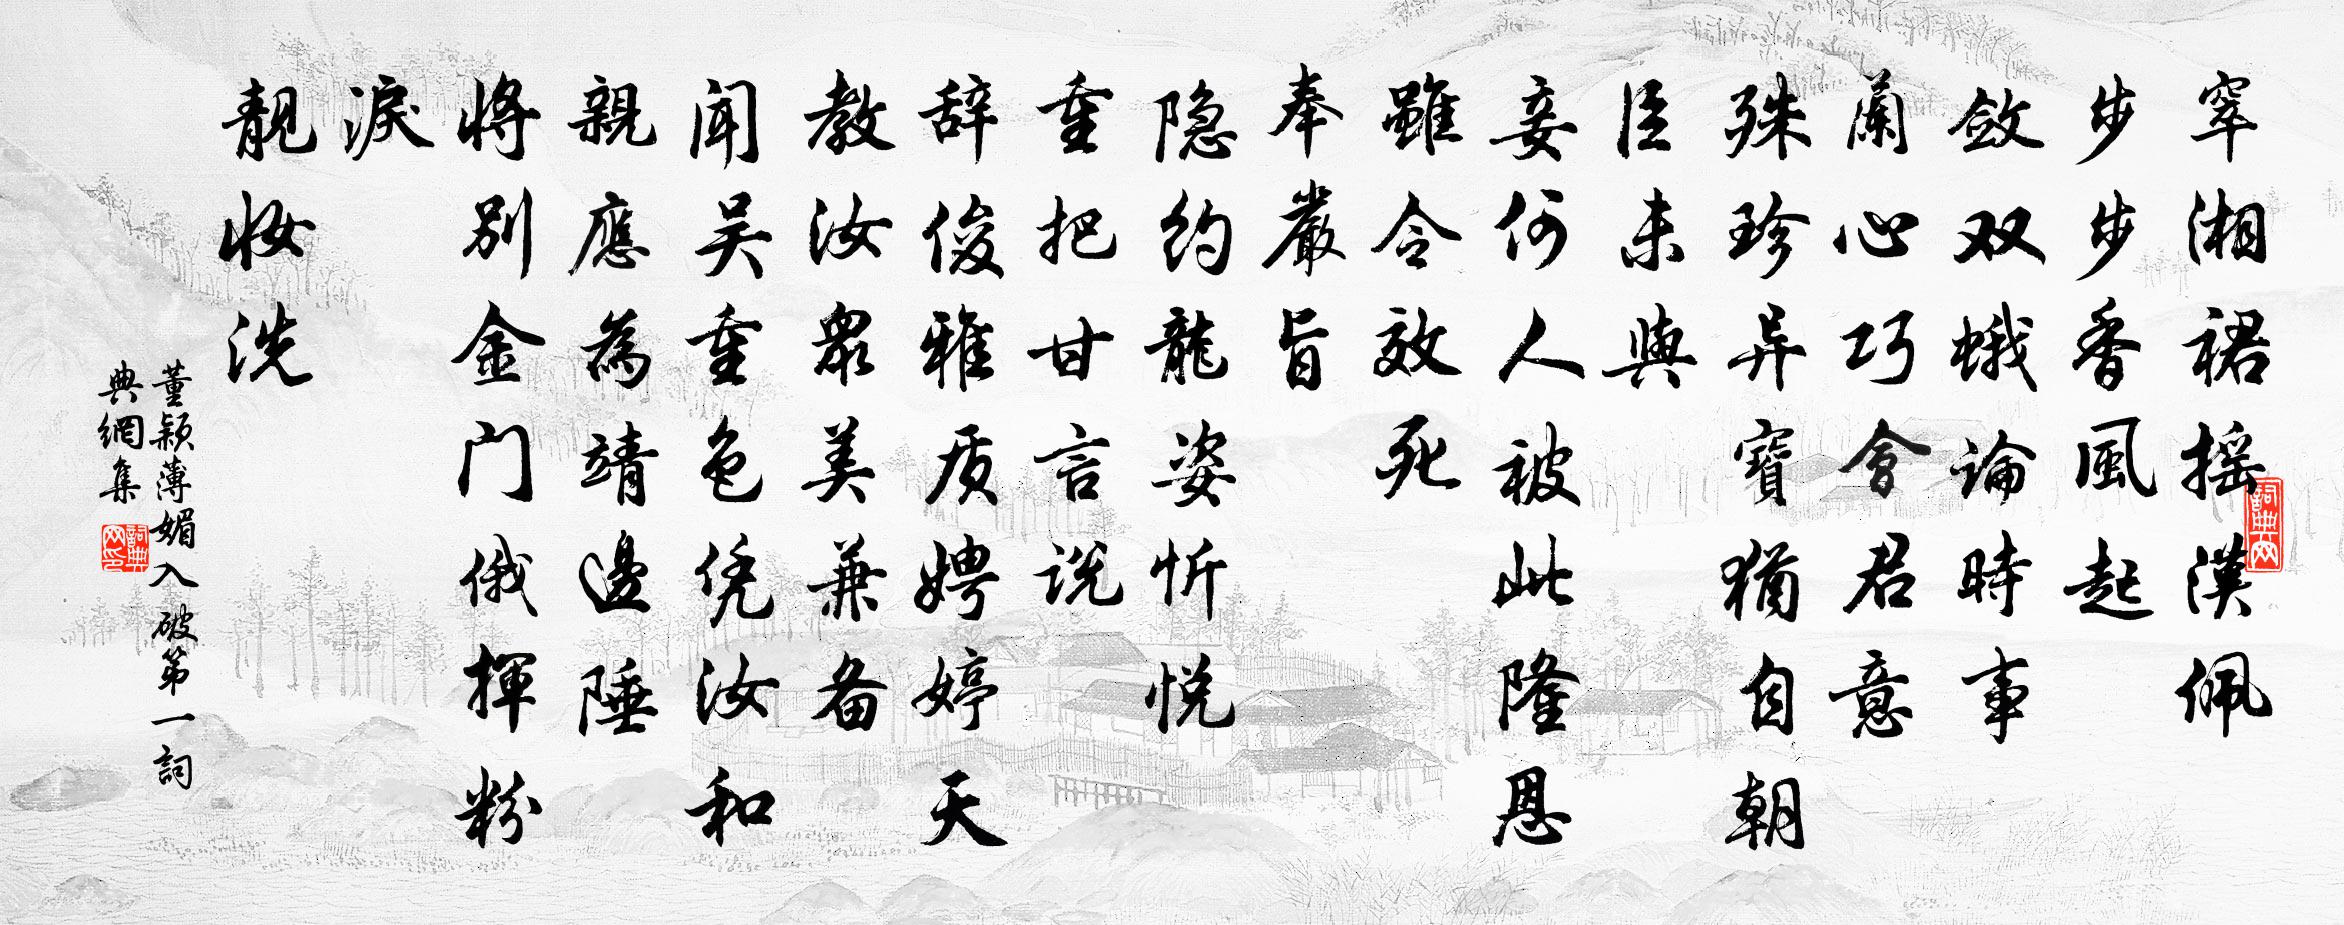 窣湘裙摇漢佩
步步香風起
斂双蛾論時事
蘭心巧會君意
殊珍异寶猶自朝
臣未與
妾何人被此隆恩
雖令效死
奉嚴旨
隐約龍姿忻悦
重把甘言説
辞俊雅质娉婷天
教汝眾美兼备
闻吴重色凭汝和
親應為靖邊陲
将别金门俄揮粉
淚
靓妝洗
董穎薄媚入破第一詞
典網集
詞典网
詞典网印